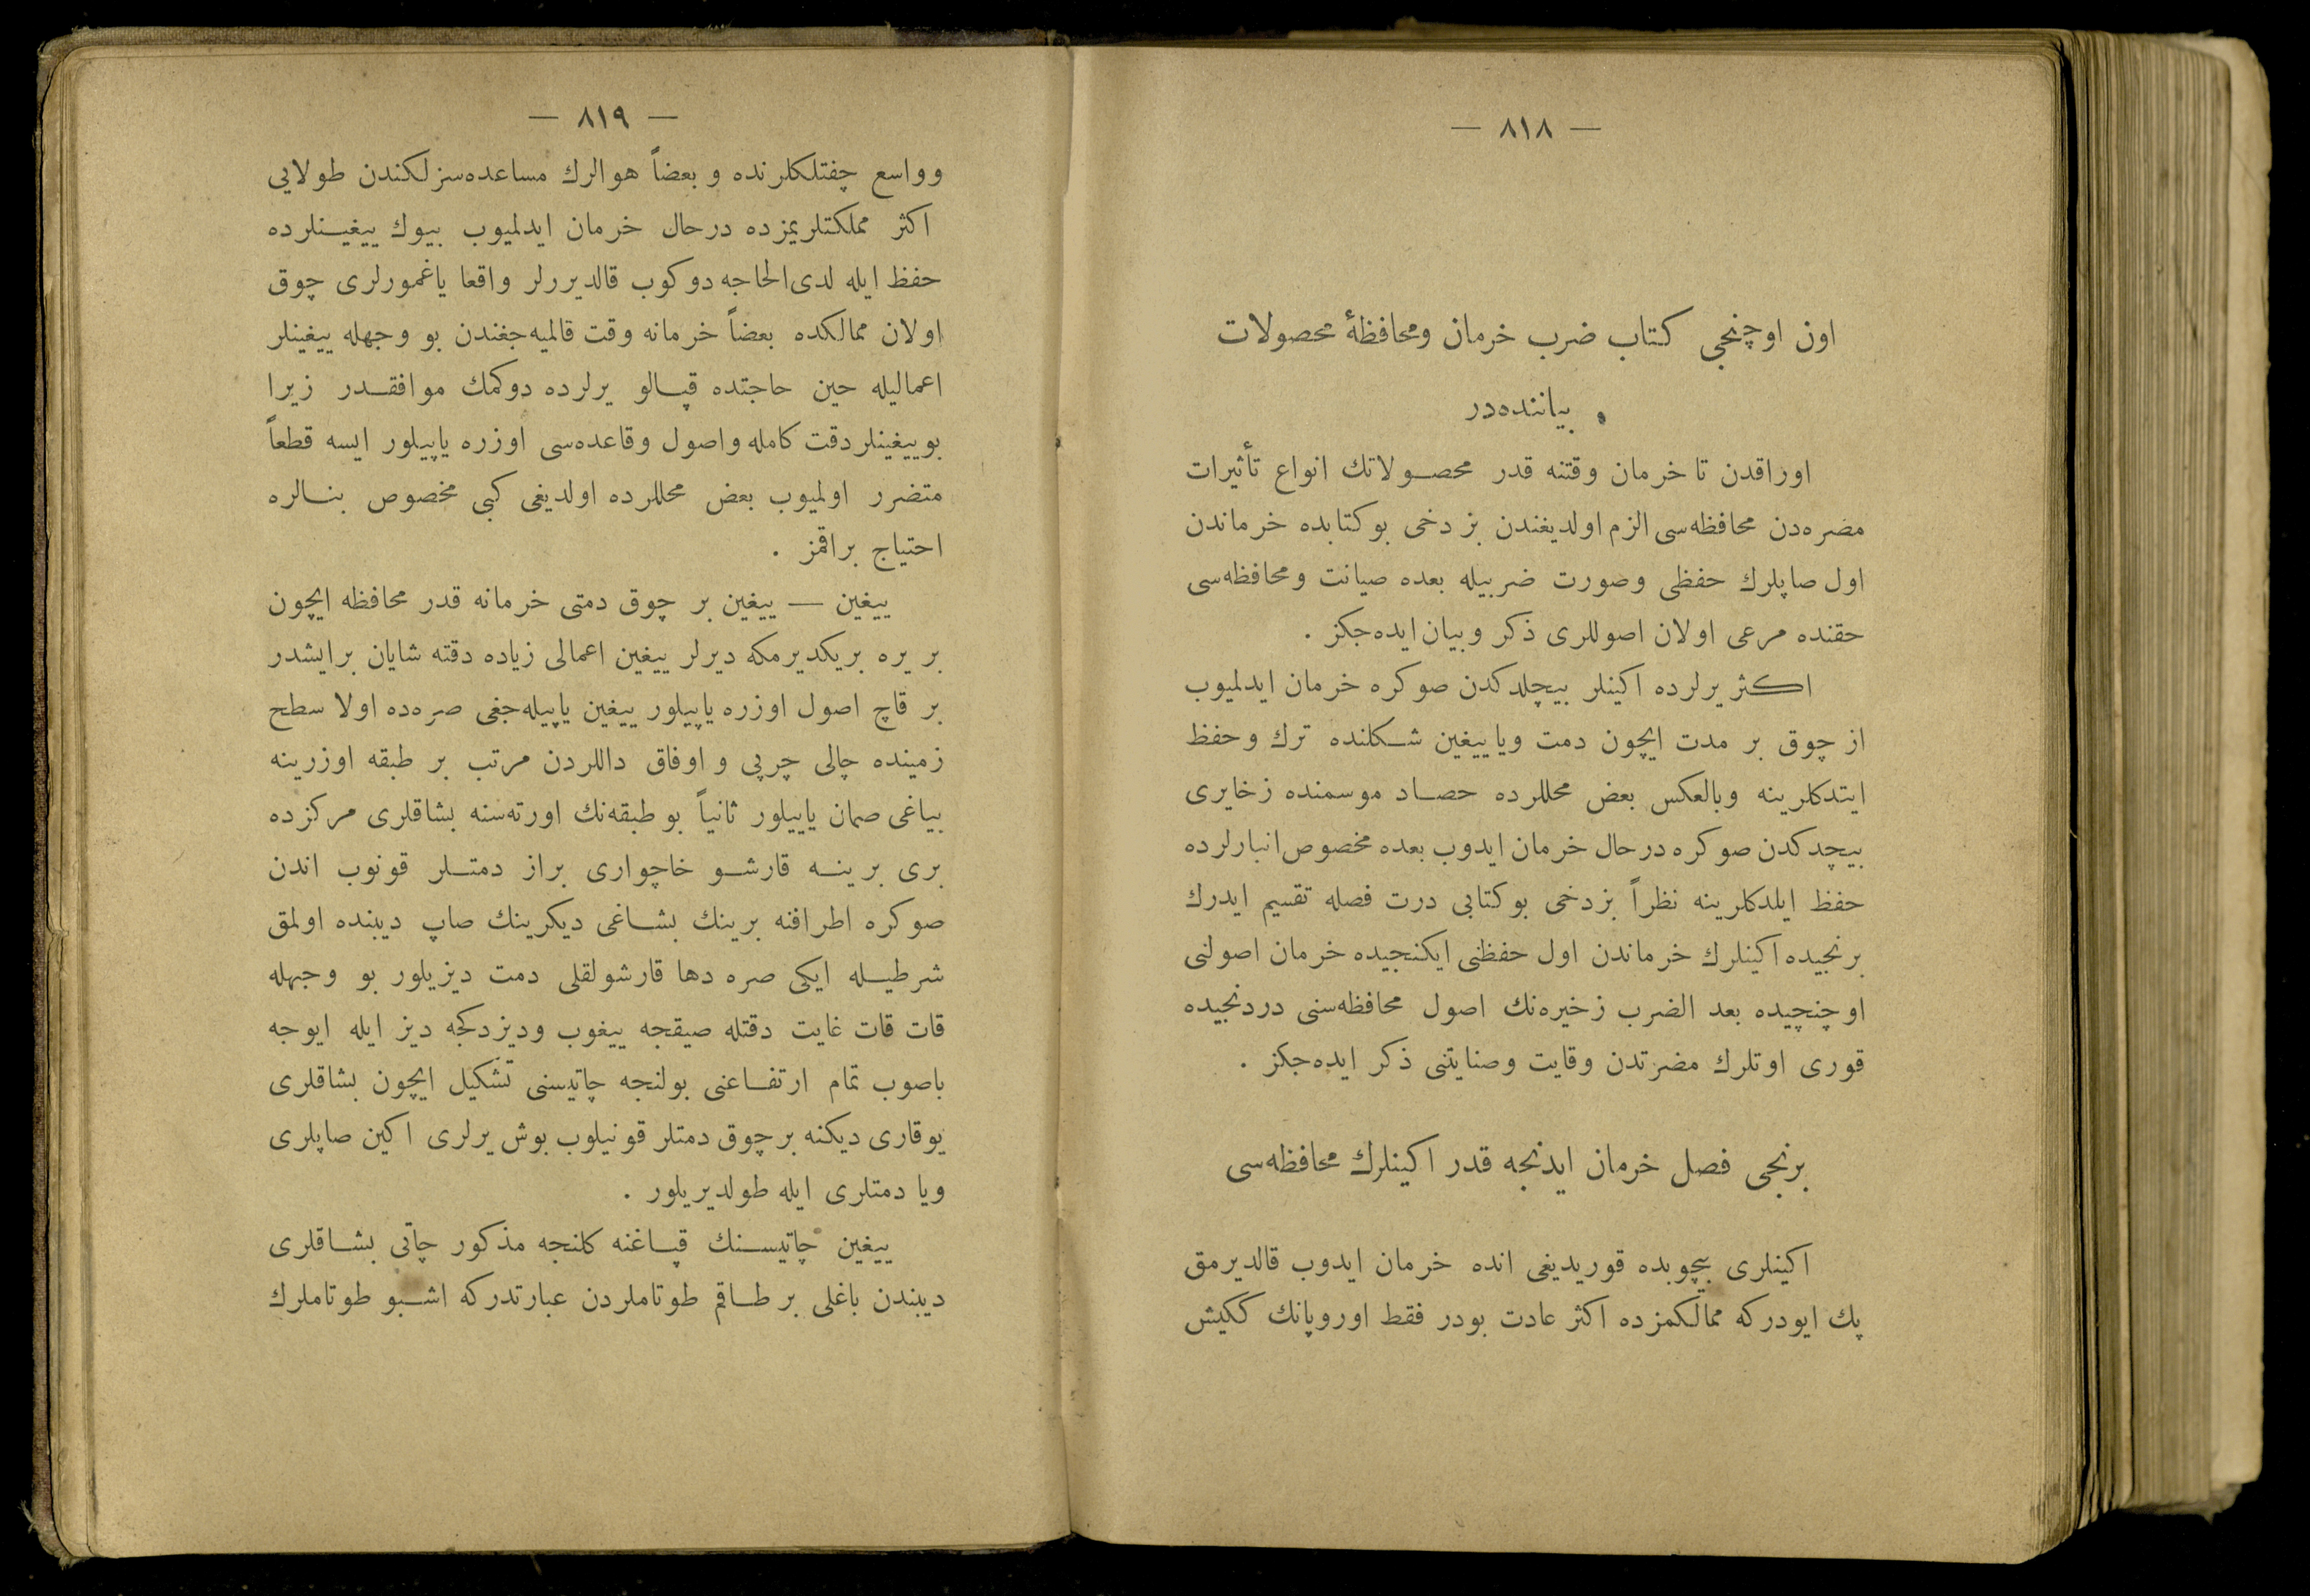 — ٨١٨ —
اون اوچنجی کتاب ضرب خرمان ومحافظهٔ محصولات
بیاننده‌در
اوراقدن تا خرمان وقتنه قدر محصولاتك انواع تأثیرات
مضره‌دن محافظه‌سی الزم اولدیغندن بز دخی بو کتابده خرماندن
اول صاپلرك حفظی وصورت ضربیله بعده صیانت ومحافظه‌سی
حقنده مرعی اولان اصوللری ذکر وبیان ایده‌جکز .
اکثر یرلرده اکینلر بیچلدکدن صوکره خرمان ایدلمیوب
از چوق بر مدت ایچون دمت ویا ییغین شکلنده ترك وحفظ
ایتدکلرینه وبالعکس بعض محللرده حصاد موسمنده زخایری
بیچدکدن صوکره درحال خرمان ایدوب بعده مخصوص انبارلرده
حفظ ایلدکلرینه نظراً بزدخی بو کتابی درت فصله تقسیم ایدرك
برنجیده اکینلرك خرماندن اول حفظنی ایکنجیده خرمان اصولنی
اوچنچیده بعد الضرب زخیره‌نك اصول محافظه‌سنی دردنجیده
قوری اوتلرك مضرتدن وقایت وصنایتنی ذکر ایده‌جکز .
برنجی فصل خرمان ایدنجه قدر اکینلرك محافظه‌سی
اکینلری بیچوبده قوریدیغی انده خرمان ایدوب قالدیرمق
پك ایودرکه ممالکمزده اکثر عادت بودر فقط اوروپانك ککیش
— ٨١٩ —
وواسع چفتلکلرنده و بعضاً هوالرك مساعده‌سزلکندن طولایی
اکثر مملکتلریمزده درحال خرمان ایدلمیوب بیوك ییغینلرده
حفظ ایله لدی‌الحاجه دوکوب قالدیررلر واقعا یاغمورلری چوق
اولان ممالکده بعضاً خرمانه وقت قالمیه‌جغندن بو وجهله ییغینلر
اعمالیله حین حاجتده قپالو یرلرده دوکمك موافقدر زیرا
بو ییغینلر دقت کامله واصول وقاعده‌سی اوزره یاپیلور ایسه قطعاً
متضرر اولمیوب بعض محللرده اولدیغی کبی مخصوص بنالره
احتیاج براقمز .
ییغین — ییغین بر چوق دمتی خرمانه قدر محافظه ایچون
بر یره بریکدیرمکه دیرلر ییغین اعمالی زیاده دقته شایان برایشدر
بر قاچ اصول اوزره یاپیلور ییغین یاپیله‌جغی صره‌ده اولا سطح
زمینده چالی چرپی و اوفاق داللردن مرتب بر طبقه اوزرینه
بیاغی صمان یاپیلور ثانیاً بو طبقه‌نك اورته‌سنه بشاقلری مرکزده
بری برینه قارشو خاچواری براز دمتلر قونوب اندن
صوکره اطرافنه برینك بشاغی دیکرینك صاپ دیبنده اولمق
شرطیله ایکی صره دها قارشولقلی دمت دیزیلور بو وجهله
قات قات غایت دقتله صیقجه ییغوب ودیزدکجه دیز ایله ایوجه
باصوب تمام ارتفاعنی بولنجه چاتیسنی تشکیل ایچون بشاقلری
یوقاری دیکنه برچوق دمتلر قونیلوب بوش یرلری اکین صاپلری
ویا دمتلری ایله طولدیریلور .
ییغین چاتیسنك قپاغنه کلنجه مذکور چاتی بشاقلری
دیبندن باغلی بر طاقم طوتاملردن عبارتدرکه اشبو طوتاملرك